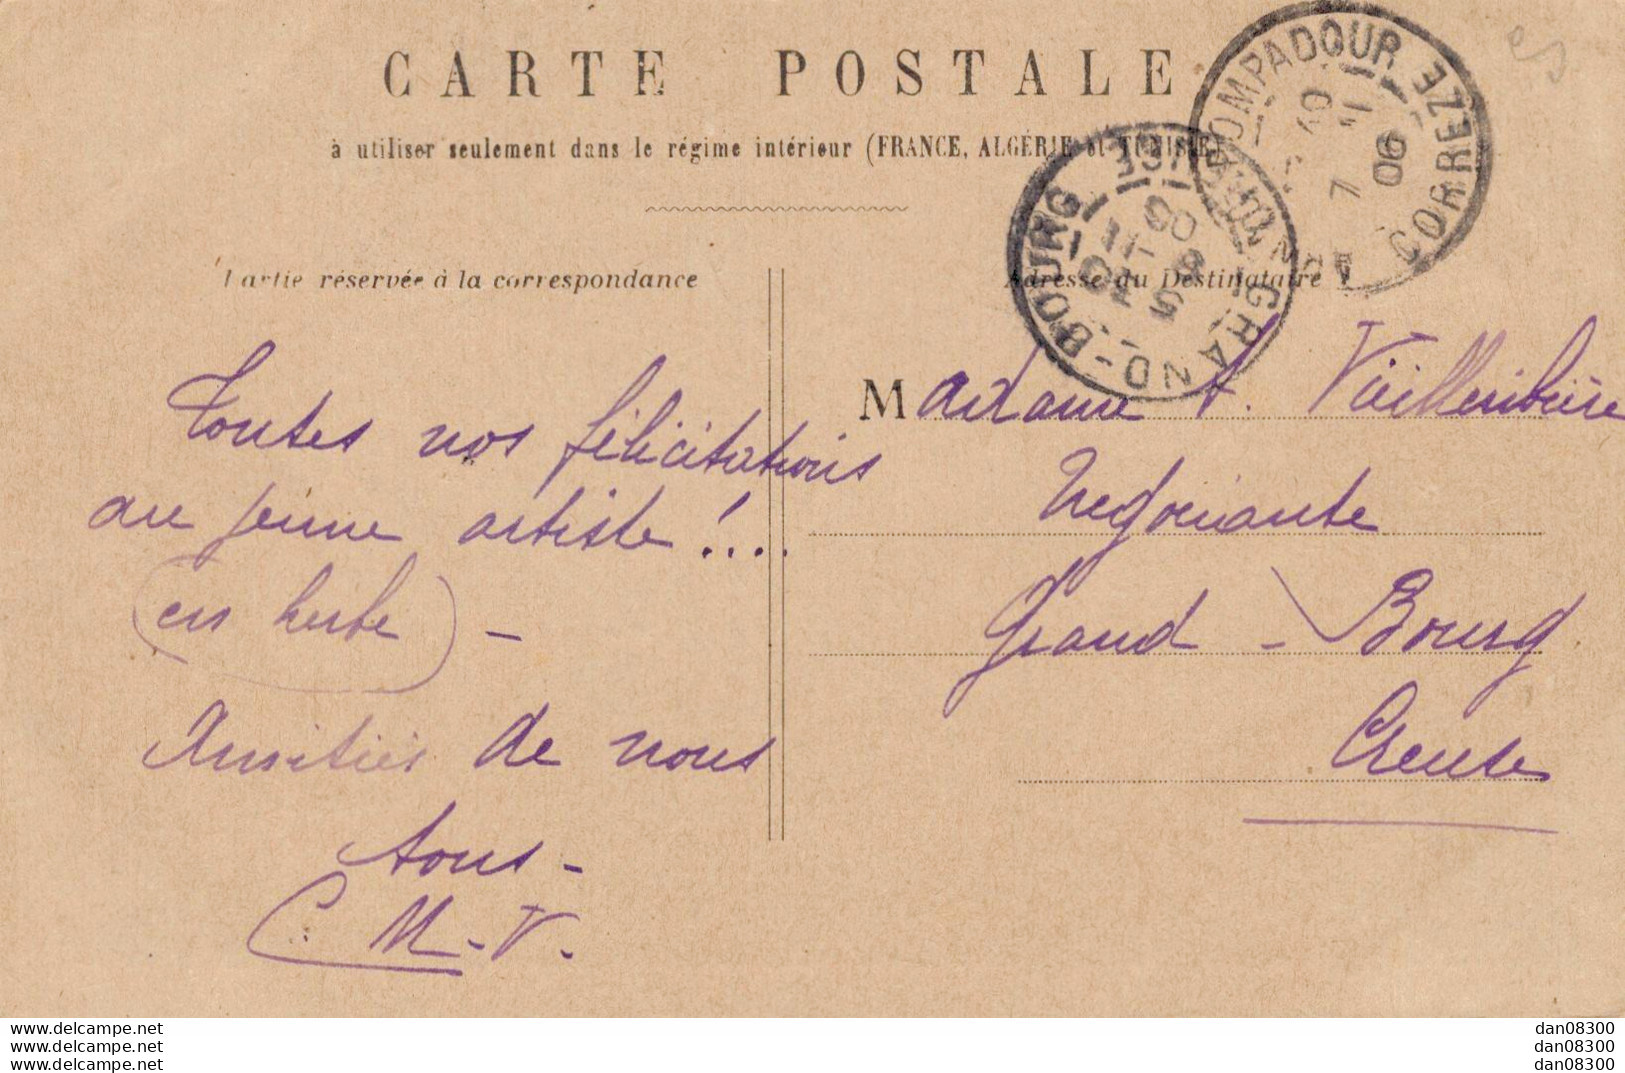 CARTE POSTALE
à utiliser seulement dans le régime intérieur (FRANCE, ALGÉRIE et TUNISIE)
POMPADOUR CORREZE
06
GRAND-BOURG
Partie réservée à la correspondance
Adresse du Destinataire
Toutes nos félicitations
au jeune artiste !....
(en herbe) -
Amitiés de nous
tous -
C. M.-V.
Madame
Négociante
Grand - Bourg
Creuse
www.delcampe.net
www.delcampe.net
www.delcampe.net
dan08300
dan08300
dan08300